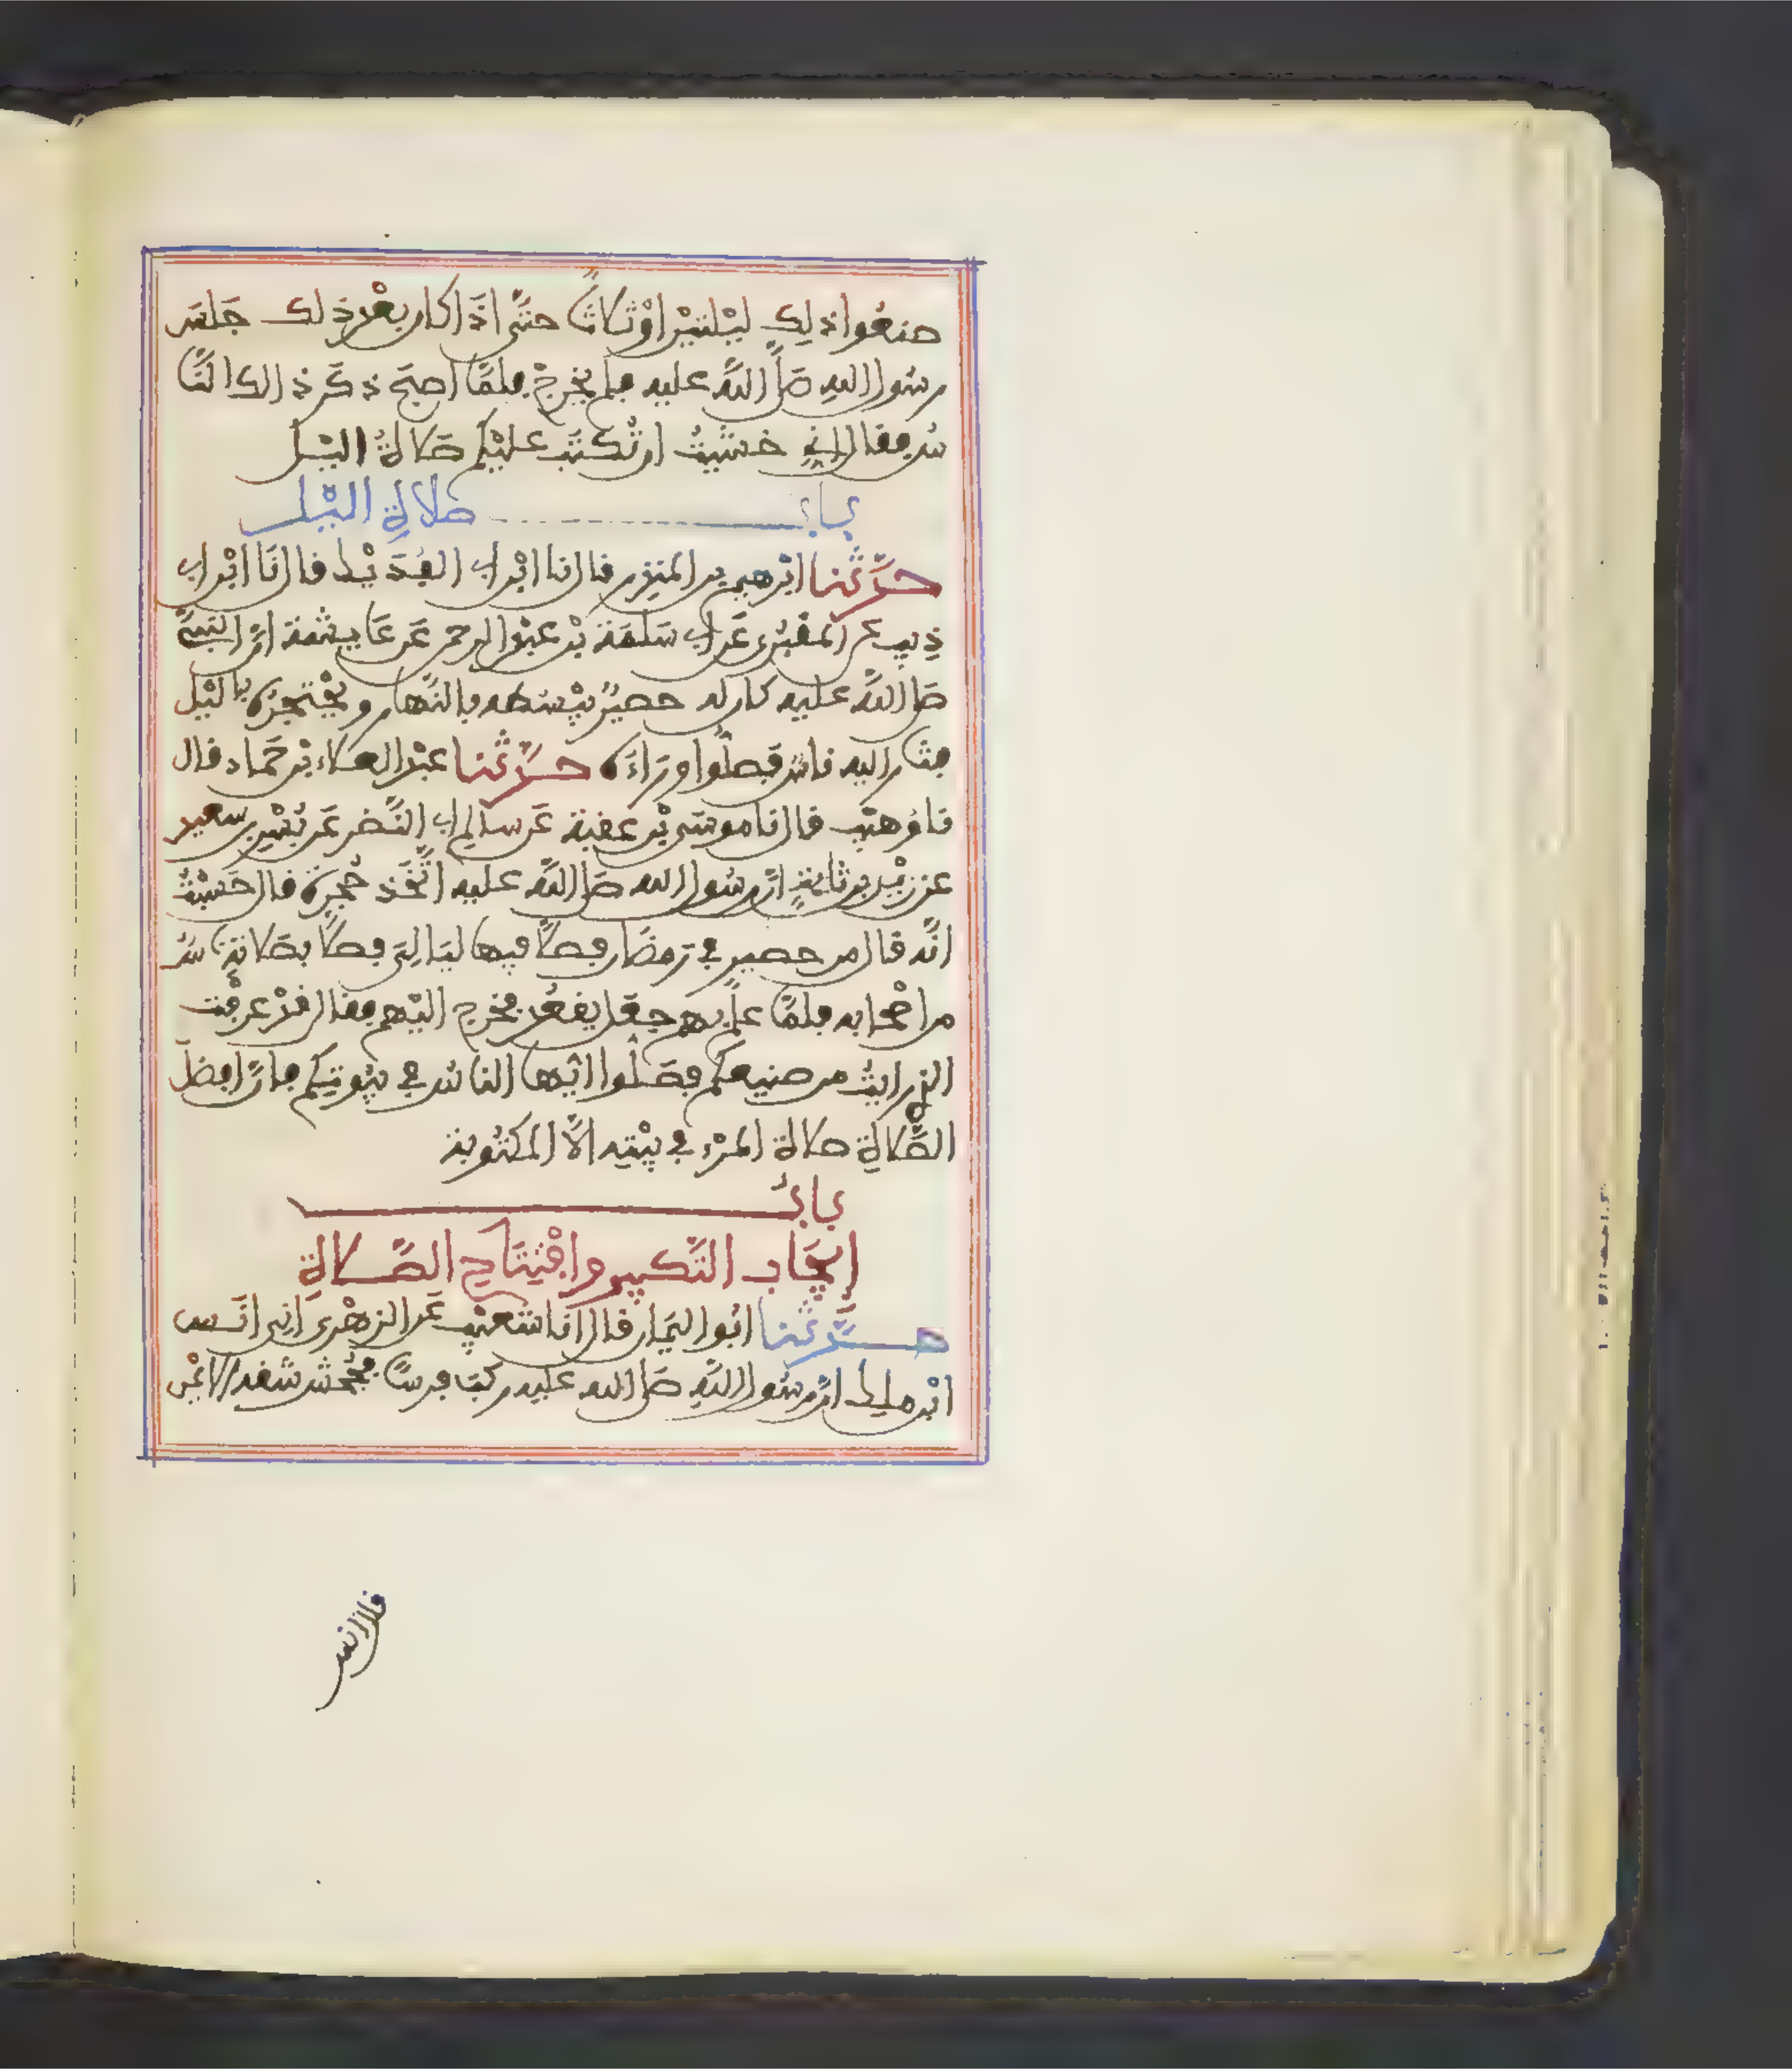 صنعوا ذلك ليلتين أو ثلاثا حتى إذا كان بعد ذلك جلس
رسول الله صلى الله عليه فلم يخرج فلما أصبح ذكر ذلك النا
س فقال إني خشيت أن تكتب عليكم صلاة الليل
باب صلاة الليل
حدثنا ابرهيم بن المنذر قال نا ابن أبي الفديك قال نا ابن أبي
ذيب عن المقبري عن أبي سلمة بن عبد الرحمن عن عايشة أن النبي
صلى الله عليه كان له حصير يبسطه بالنهار ويحتجره بالليل
فثار إليه ناس فصلوا وراءه حدثنا عبد الأعلاء بن حماد قال
نا وهيب قال نا موسى بن عقبة عن سالم أبي النضر عن بسر بن سعيد
عن زيد بن ثابت أن رسول الله صلى الله عليه اتخذ حجرة قال حسبت
أنه قال من حصير في رمضان فصلا فيها ليالي فصلا بصلاته ناس
من أصحابه فلما علم بهم جعل يقعد فخرج إليهم فقال قد عرفت
الذي رأيت من صنيعكم فصلوا أيها الناس في بيوتكم فإن أفضل
الصلاة صلاة المرء في بيته إلا المكتوبة
باب
إيجاب التكبير وافتتاح الصلاة
حدثنا أبو اليمان قال أنا شعيب عن الزهري أني أنس
ابن ملك أن رسول الله صلى الله عليه ركب فرسا فجحش شقه الأيمن
قال أنس